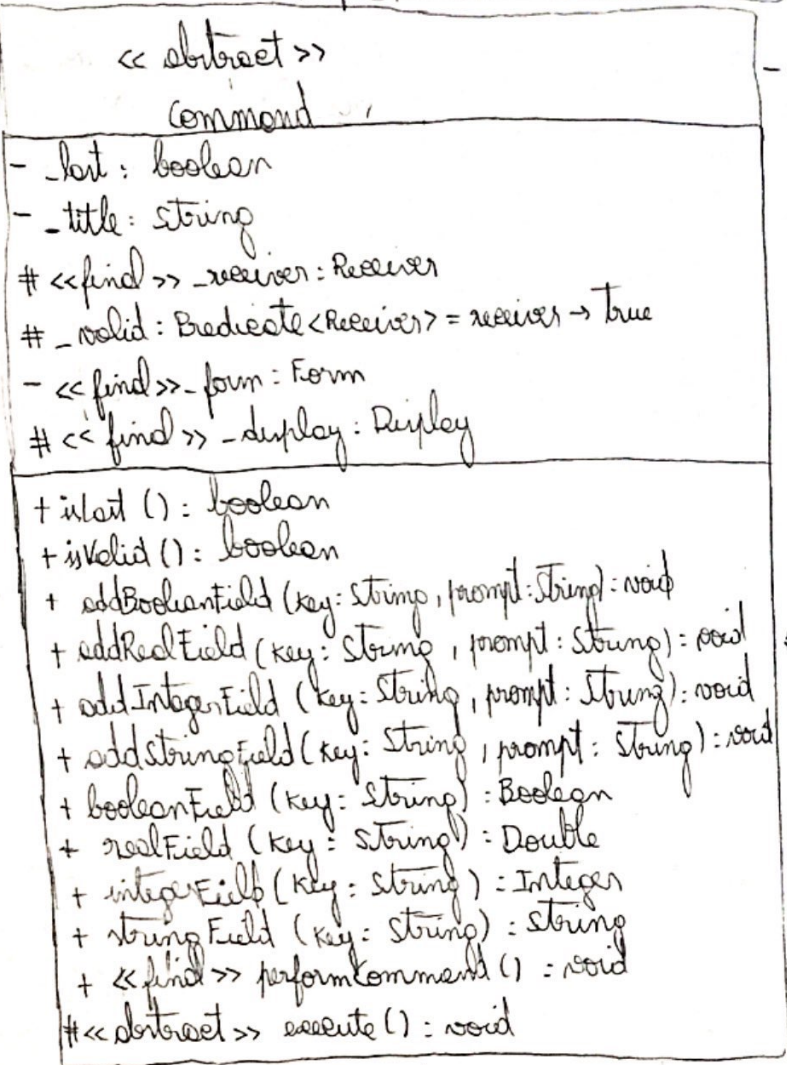 << abstract >>
Command
- _last : boolean
- _title : String
# <<final>> _receiver : Receiver
# _valid : Predicate<Receiver> = receiver → true
- <<final>> _form : Form
# <<final>> _display : Display
+ isLast () : boolean
+ isValid () : boolean
+ addBooleanField (key : String, prompt : String) : void
+ addRealField (key : String, prompt : String) : void
+ addIntegerField (key : String, prompt : String) : void
+ addStringField (key : String, prompt : String) : void
+ booleanField (key : String) : Boolean
+ realField (key : String) : Double
+ integerField (key : String) : Integer
+ stringField (key : String) : String
+ <<final>> performCommand () : void
# << abstract >> execute () : void